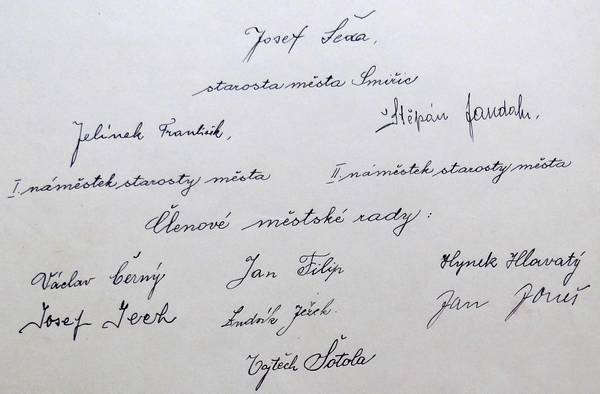 Josef Sexa,
starosta města Smiřic
Jelínek František,
Štěpán Jandah,
I. náměstek starosty města
II. náměstek starosty města
Členové městské rady:
Václav Černý
Jan Filip
Hynek Hlavatý
Josef Jech
Ludvík Ježek
Jan Jouš
Vojtěch Šotola